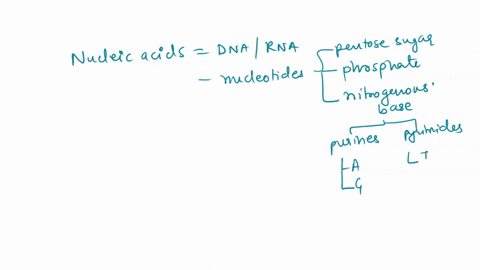 Nucleic acids = DNA / RNA
- nucleotides
pentose sugar
phosphate
nitrogenous
base
purines
A
G
T